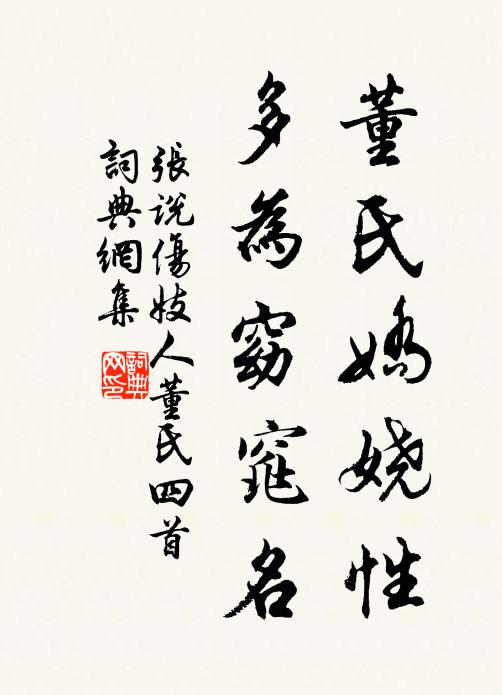 董氏嬌嬈性
多為窈窕名
張說傷妓人董氏四首
詞典網集
詞典
网印